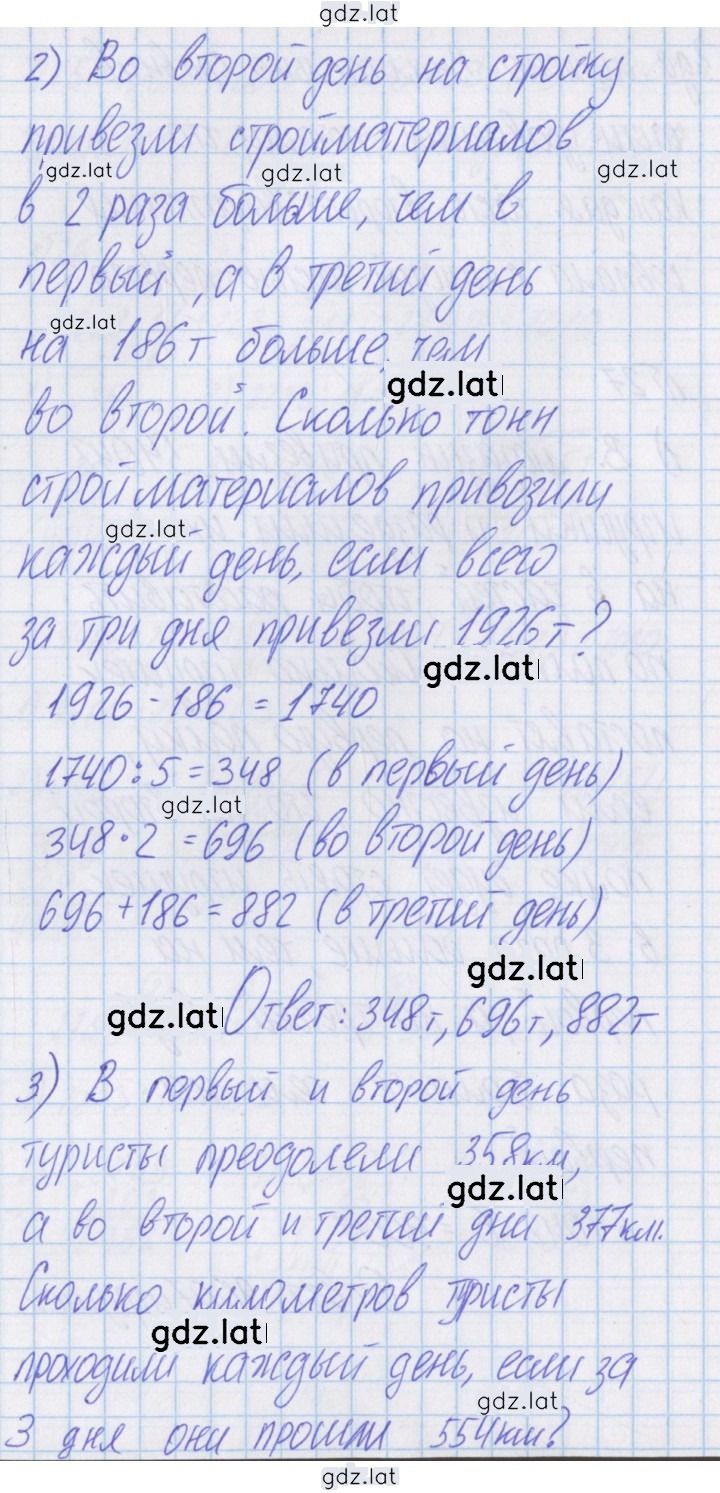 gdz.lat
2) Во второй день на стройку
привезли стройматериалов
gdz.lat gdz.lat gdz.lat
в 2 раза больше, чем в
первый, а в третий день
gdz.lat
на 186т больше, чем
gdz.lat
во второй. Сколько тонн
стройматериалов привозили
gdz.lat
каждый день, если всего
за три дня привезли 1926т?
gdz.lat
1926 - 186 = 1740
1740 : 5 = 348 (в первый день)
gdz.lat
348 · 2 = 696 (во второй день)
696 + 186 = 882 (в третий день)
gdz.lat
gdz.lat Ответ: 348т, 696т, 882т
3) В первый и второй день
туристы преодолели 358км,
gdz.lat
а во второй и третий дни 377км.
Сколько километров тристы
gdz.lat
проходили каждый день, если за
gdz.lat
3 дня они прошли 554км?
gdz.lat